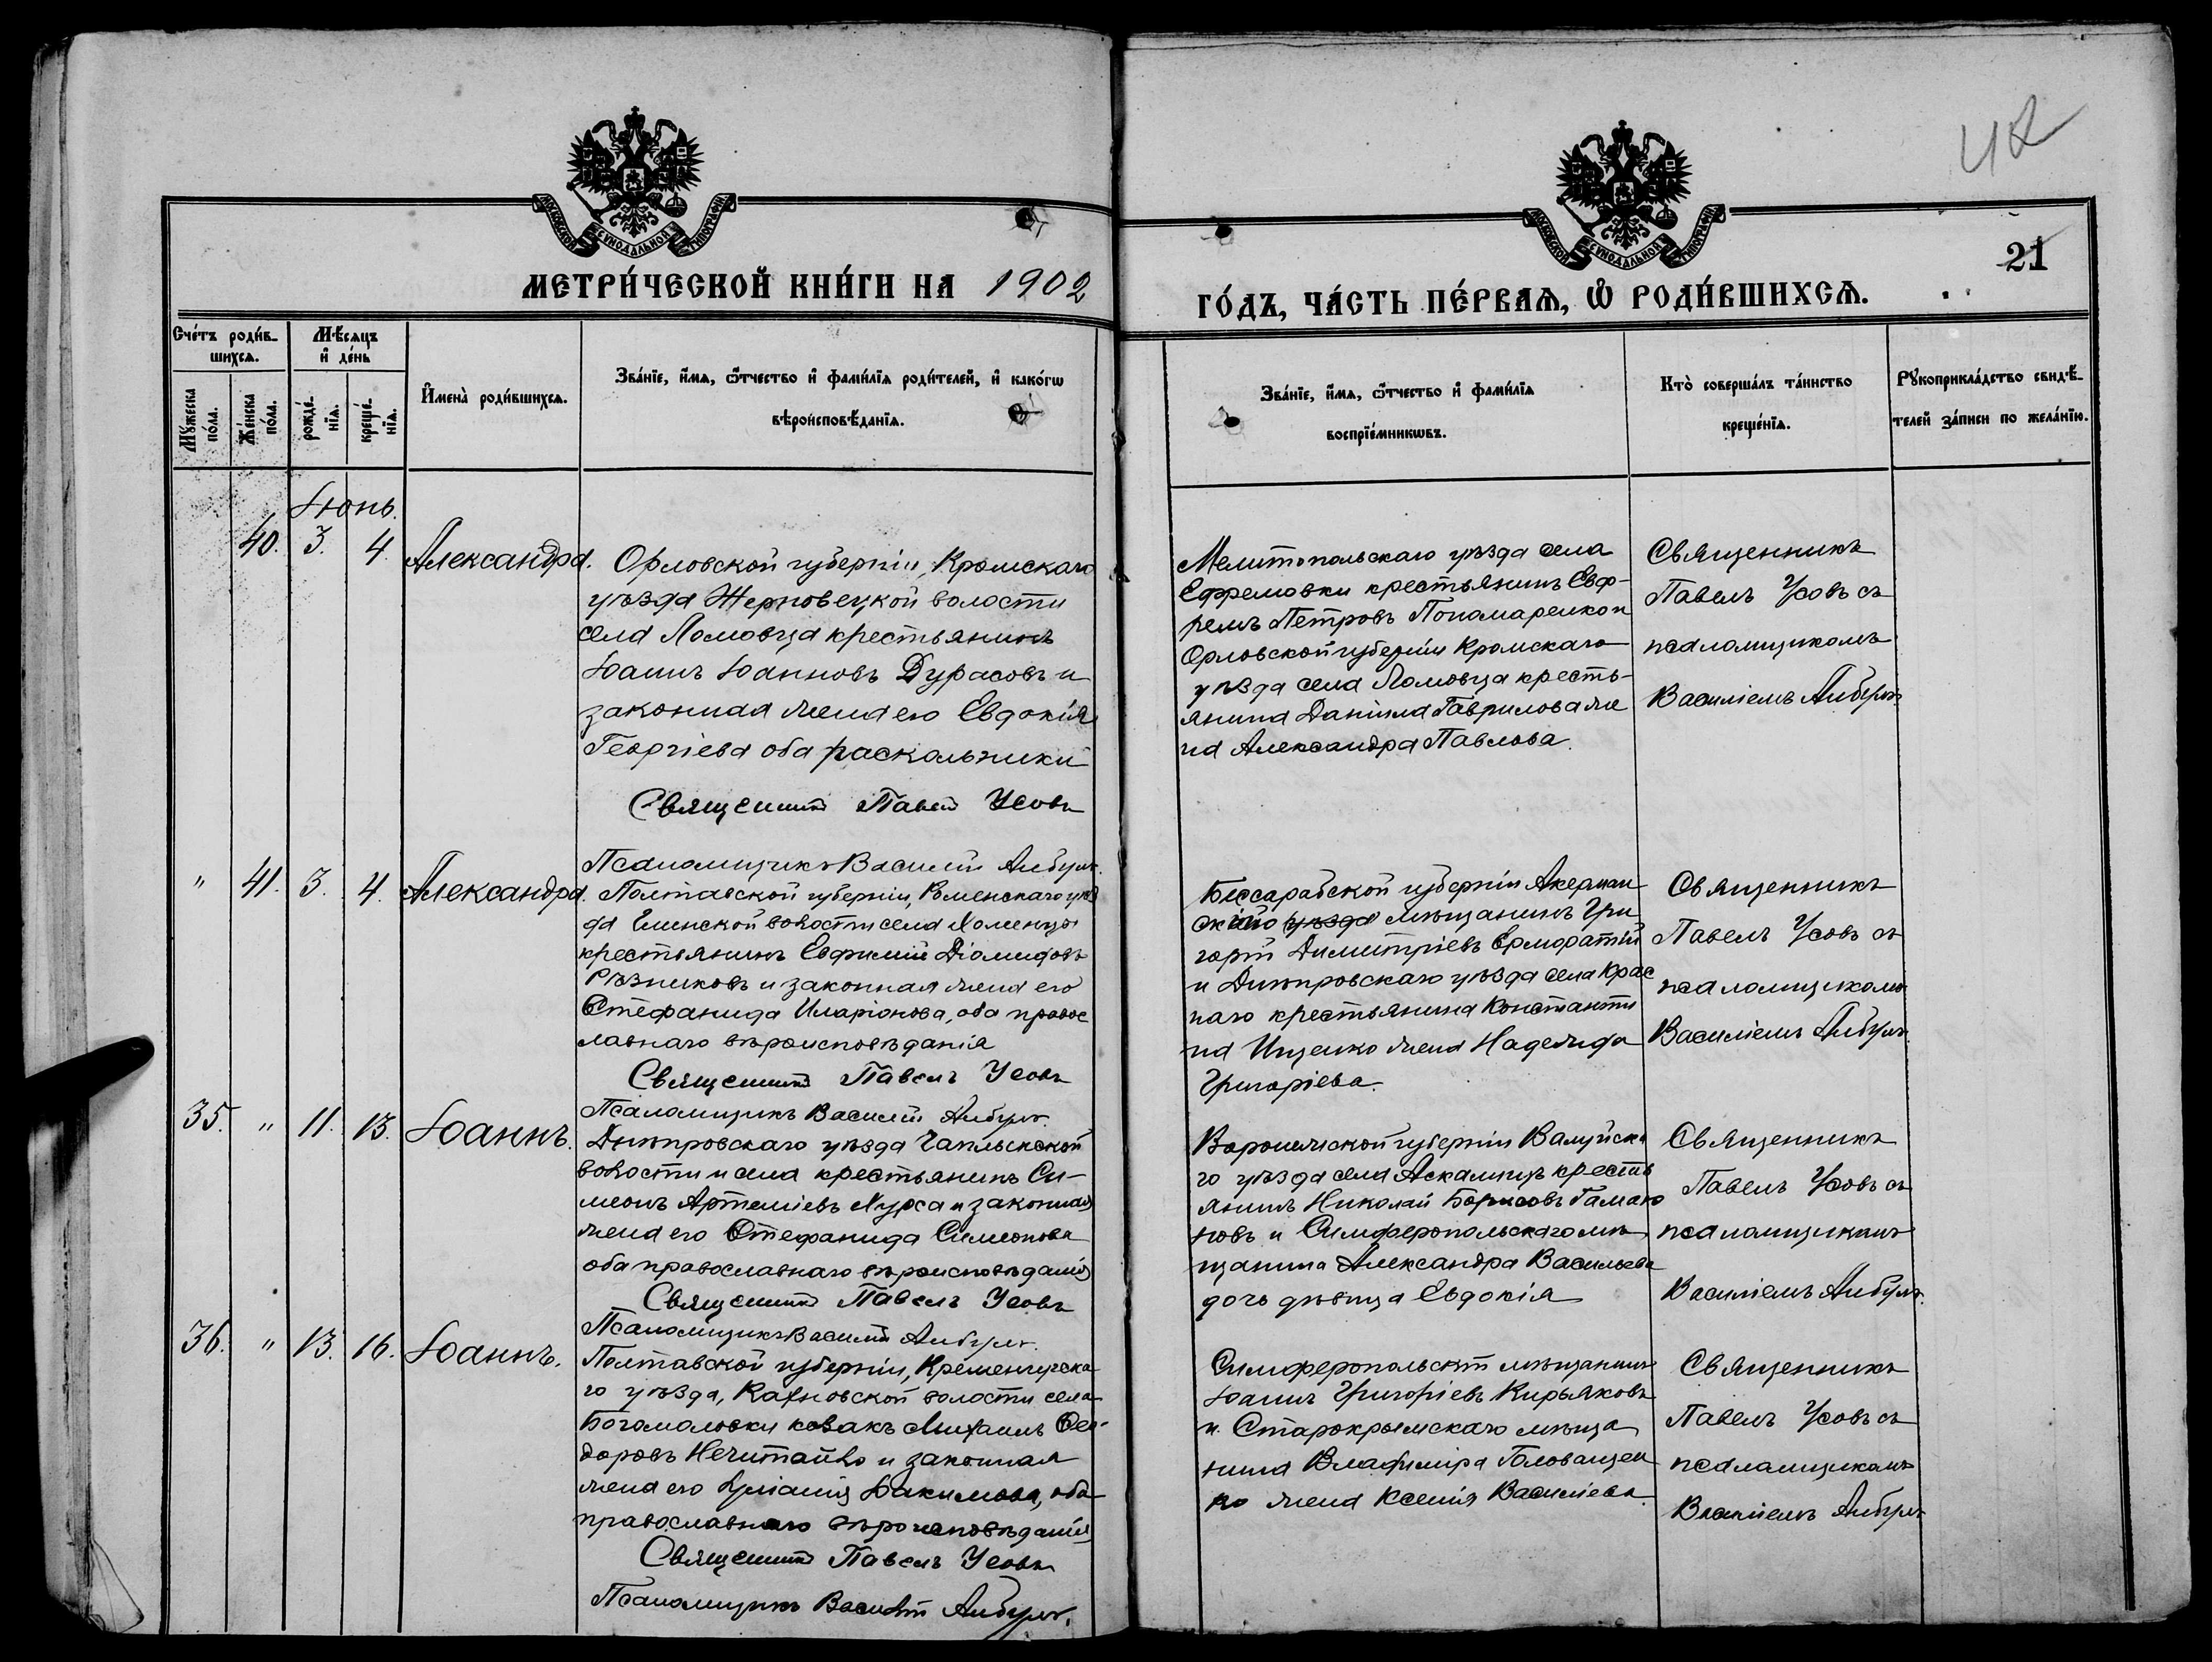 42
21
МОСКОВСКОЙ СУНОДАЛЬНОЙ ТИПОГРАФІИ
МОСКОВСКОЙ СУНОДАЛЬНОЙ ТИПОГРАФІИ
МЕТРИ́ЧЕСКОЙ КНИ́ГИ НА 1902
ГО́ДЪ, ЧА́СТЬ ПЕ́РВАѦ, Ѡ҆ РОДИ́ВШИХСѦ.
Сче́тъ роди́в-
шихсѧ.
Мꙋ́жеска
по́ла.
Же́нска
по́ла.
Мѣ́сѧцъ
и҆ де́нь
рожде́-
нїѧ.
креще́-
нїѧ.
И҆мена̀ роди́вшихсѧ.
Зва́нїе, и҆́мѧ, ѻ҆́тчество и҆ фами́лїѧ роди́телей, и҆ како́гѡ
вѣроисповѣ́данїѧ.
Зва́нїе, и҆́мѧ, ѻ҆́тчество и҆ фами́лїѧ
воспрїе́мникѡвъ.
Кто̀ соверша́лъ та́инство
креще́нїѧ.
Рꙋкоприкла́дство свидѣ́-
телей за́писи по жела́нїю.
Іюнь.
40. 3. 4. Александра.
Орловской губерніи, Кромскаго
уѣзда Жерновецкой волости
села Ломовца крестьянинъ
Іоаннъ Іоанновъ Дурасовъ и
законная жена его Евдокія
Георгіева оба раскольники
Священникъ Павелъ Усовъ
Псаломщикъ Василій
Мелитопольскаго уѣзда села
Ефремовки крестьянинъ Евф-
ремъ Петровъ Пономаренко и
Орловской губерніи Кромскаго
уѣзда села Ломовца кресть-
янина Даніила Гаврилова же
на Александра Павлова.
Священникъ
Павелъ Усовъ съ
псаломщикомъ
Василіемъ
" 41. 3. 4. Александра.
Полтавской губерніи, Роменскаго уѣз
да волости села
крестьянинъ Евфимій Діомидовъ
Рѣзниковъ и законная жена его
Стефанида Иларіонова, оба правос
лавнаго вѣроисповѣданія
Священникъ Павелъ Усовъ
Псаломщикъ Василій
Бессарабской губерніи Акерман
скаго уѣзда мѣщанинъ Гри
горій Димитріевъ
и Днѣпровскаго уѣзда села Крас
наго крестьянина Константи
на Ищенко жена Надежда
Григоріева.
Священникъ
Павелъ Усовъ съ
псаломщикомъ
Василіемъ
35. " 11. 13. Іоаннъ.
Днѣпровскаго уѣзда Чаплынской
волости и села крестьянинъ Си-
меонъ Артеміевъ и законная
жена его Стефанида Симеонова
оба православнаго вѣроисповѣданія
Священникъ Павелъ Усовъ
Псаломщикъ Василій
Воронежской губерніи Валуйска
го уѣзда села кресть
янинъ Николай Борисовъ
новъ и Симферопольскаго мѣ
щанина Александра Васильева
дочь дѣвица Евдокія
Священникъ
Павелъ Усовъ съ
псаломщикомъ
Василіемъ
36. " 13. 16. Іоаннъ.
Полтавской губерніи, Кременчугска
го уѣзда, волости села
Богомоловки козакъ Михаилъ Фео-
доровъ Нечитайло и законная
жена его Іуліанія Іакимова, оба
православнаго вѣроисповѣданія
Священникъ Павелъ Усовъ
Псаломщикъ Василій
Симферопольскій мѣщанинъ
Іоаннъ Григоріевъ Кирьяковъ
и Старокрымскаго мѣща
нина Владиміра Голованцен
ко жена Ксенія Василіева.
Священникъ
Павелъ Усовъ съ
псаломщикомъ
Василіемъ